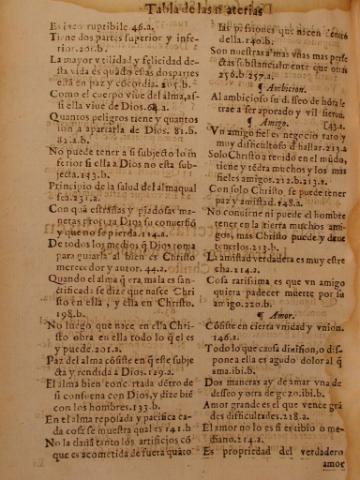 Tabla de las materias
Es incorruptibile 46.a.
Tiene dos partes superior y infe-
rior.201.b.
La mayor vtilidad y felicidad de-
sta vida es quãdo estas dos partes
está en paz y cócordia. 205.b.
Como el cuerpo vive del alma, as-
si ella vive de Dios.64.a.
Quantos peligros tiene y quantos
son a apartarla de Dios. 81.b.
82.a.b.
No puede tener a si subjecto lo in
ferior si ella a Dios no esta subje-
jecta.143.b.
Principio de la salud del alma qual
sea.231.a.
Con quã estrañas y piadosas ma-
neras procura Dios su conversió
y que no se pierda.214.a.
De todos los medios q̃ Dios toma
para guiarla al bien es Christo
mercedor y autor. 44.a.
Quando el alma q̃ era mala es san-
ctificada se dize que nasce Chri
sto en ella, y ella en Christo.
198.b.
No luego que nace en ella Chri-
sto obra en ella todo lo q̃ el es
y puede.201.a.
Paz del alma cósiste en q̃ este subje
cta y rendida a Dios.129.a.
El alma bien concertada dētro de
si consuena con Dios, y dize biē
con los hombres.133.b.
En el alma reposada y pacifica ca-
da cosa se muestra qual es 141.b
No la dañã tanto los artificios có
que es acometida de fuera quãto
las passiones que nacen dentro
della.140.b.
Son nuestras almas vnas mas perfe
ctas substancialmente que otras
256.b.257.a.
¶ Ambicion.
Al ambicioso su desseo de hóra le
trae a ser aporado y vil siervo.
¶ Amigo. 143.a.
Vn amigo fiel es negocio raro y
muy difficultoso d̃ hallar.213.a
Solo Christo a tenido en el múdo,
tiene y tēdra muchos y los mas
fieles amigos.212.b.213.a.
Con solo Christo se puede tener
paz y amistad.148.a.
No conuiene ni puede el hombre
tener en la tierra muchos ami-
gos, mas Christo puede y deue
tenerlos.213.b.
La amistad verdadera es muy estre
cha.214.a.
Cosa rarissima es que vn amigo
quiera padecer muerte por su
amigo.220.b.
¶ Amor.
Cósiste en cierta vnidad y vnion.
146.a.
Todo lo que causa diuisiō, o dis-
pone a ella es agudo dolor al q̃
ama.ibi.b.
Dos maneras ay de amar vna de
desseo y otra de gozo.ibi.b.
Amor grande es el que vence grã
des difficultades.218.a.
El amor no lo es si es tibio o me-
diano.214.a.
Es propriedad del verdadero
amor